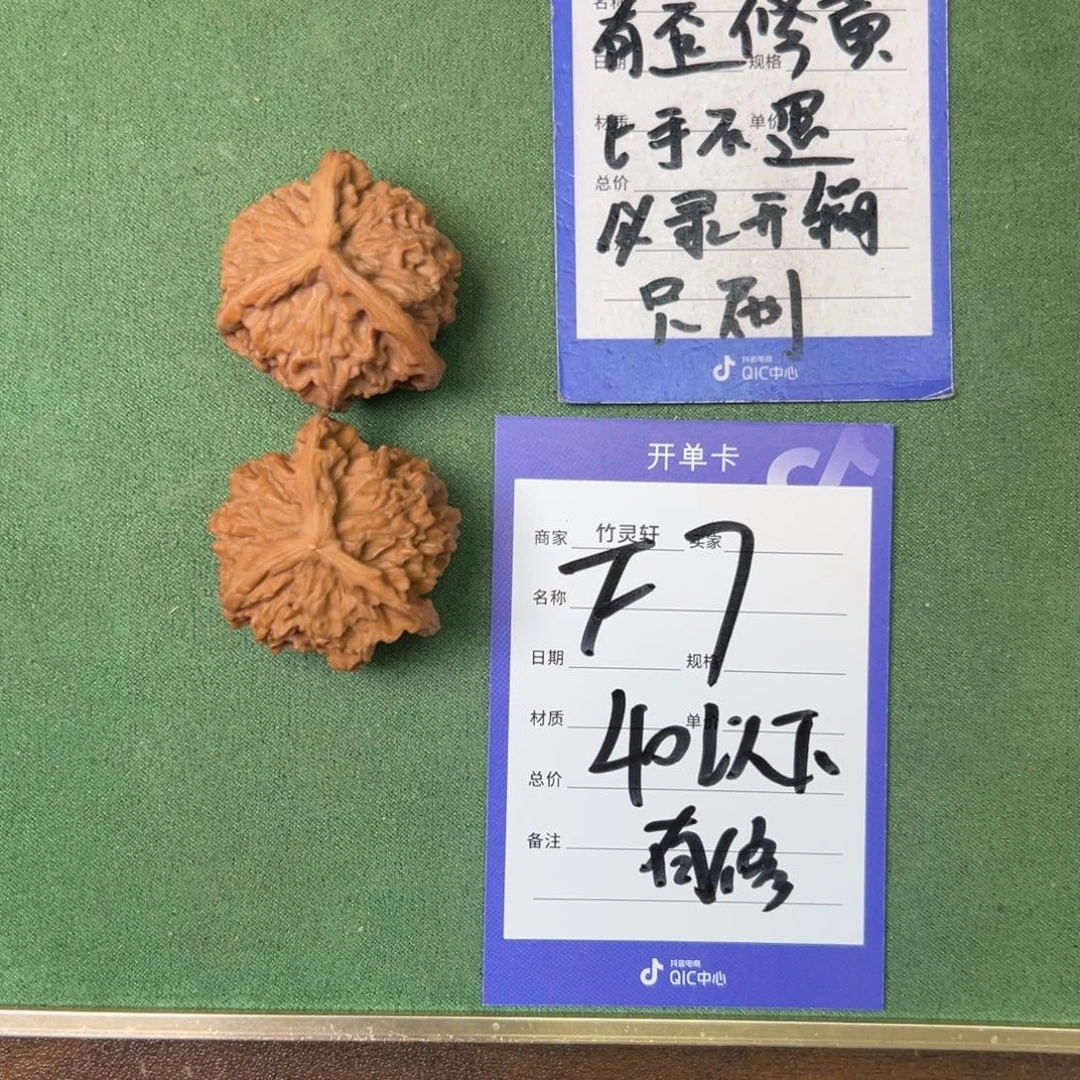 名称
有歪修黄
日期 规格
上手不退
材质 单价
总价
必录开绷
只刷
抖音电商
QIC中心
开单卡
商家 竹灵轩 买家
F7
名称
日期 规格
材质 单价
40以下
总价
备注
有修
抖音电商
QIC中心